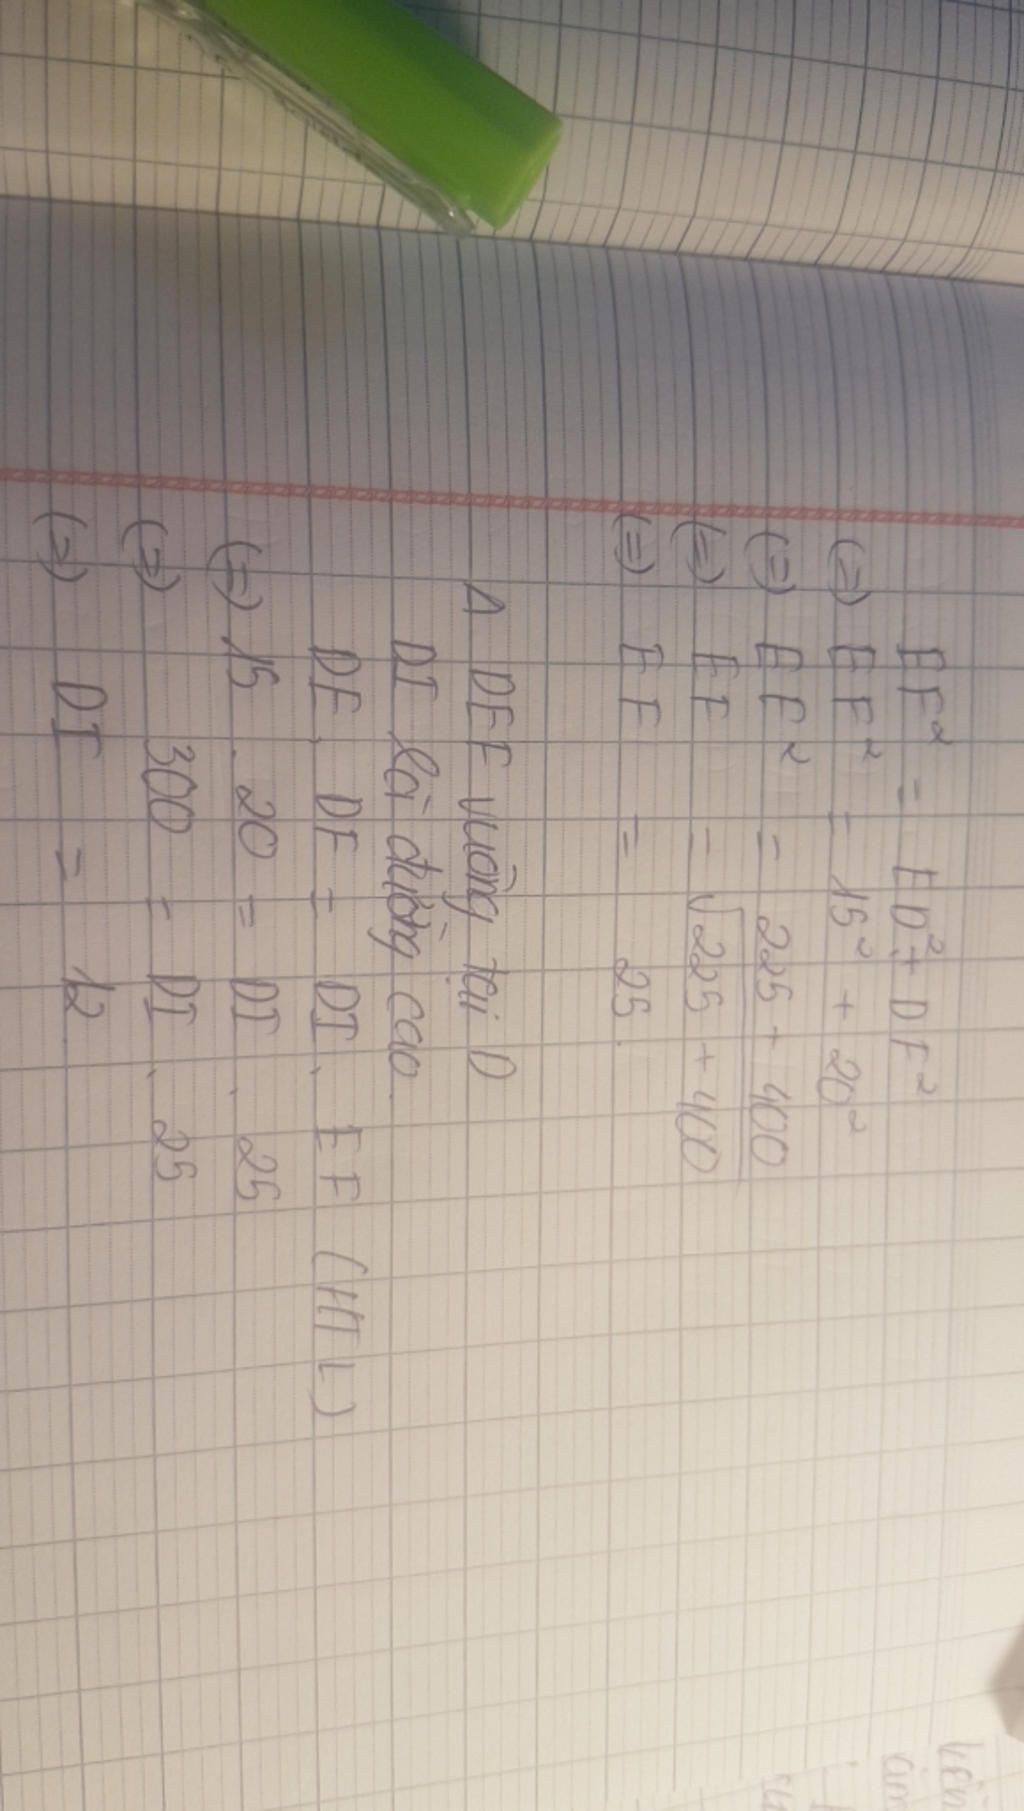 EF² = ED² + DF²
(=) EF² = 15² + 20²
(=) EF² = 225 + 400
(=) EF = √225 + 400
(=) EF = 25.
Δ DEF vuông tại D
DI là đường cao.
DE. DF = DI. EF (HTL)
(=) 15. 20 = DI. 25
(=) 300 = DI. 25
(=) DI = 12